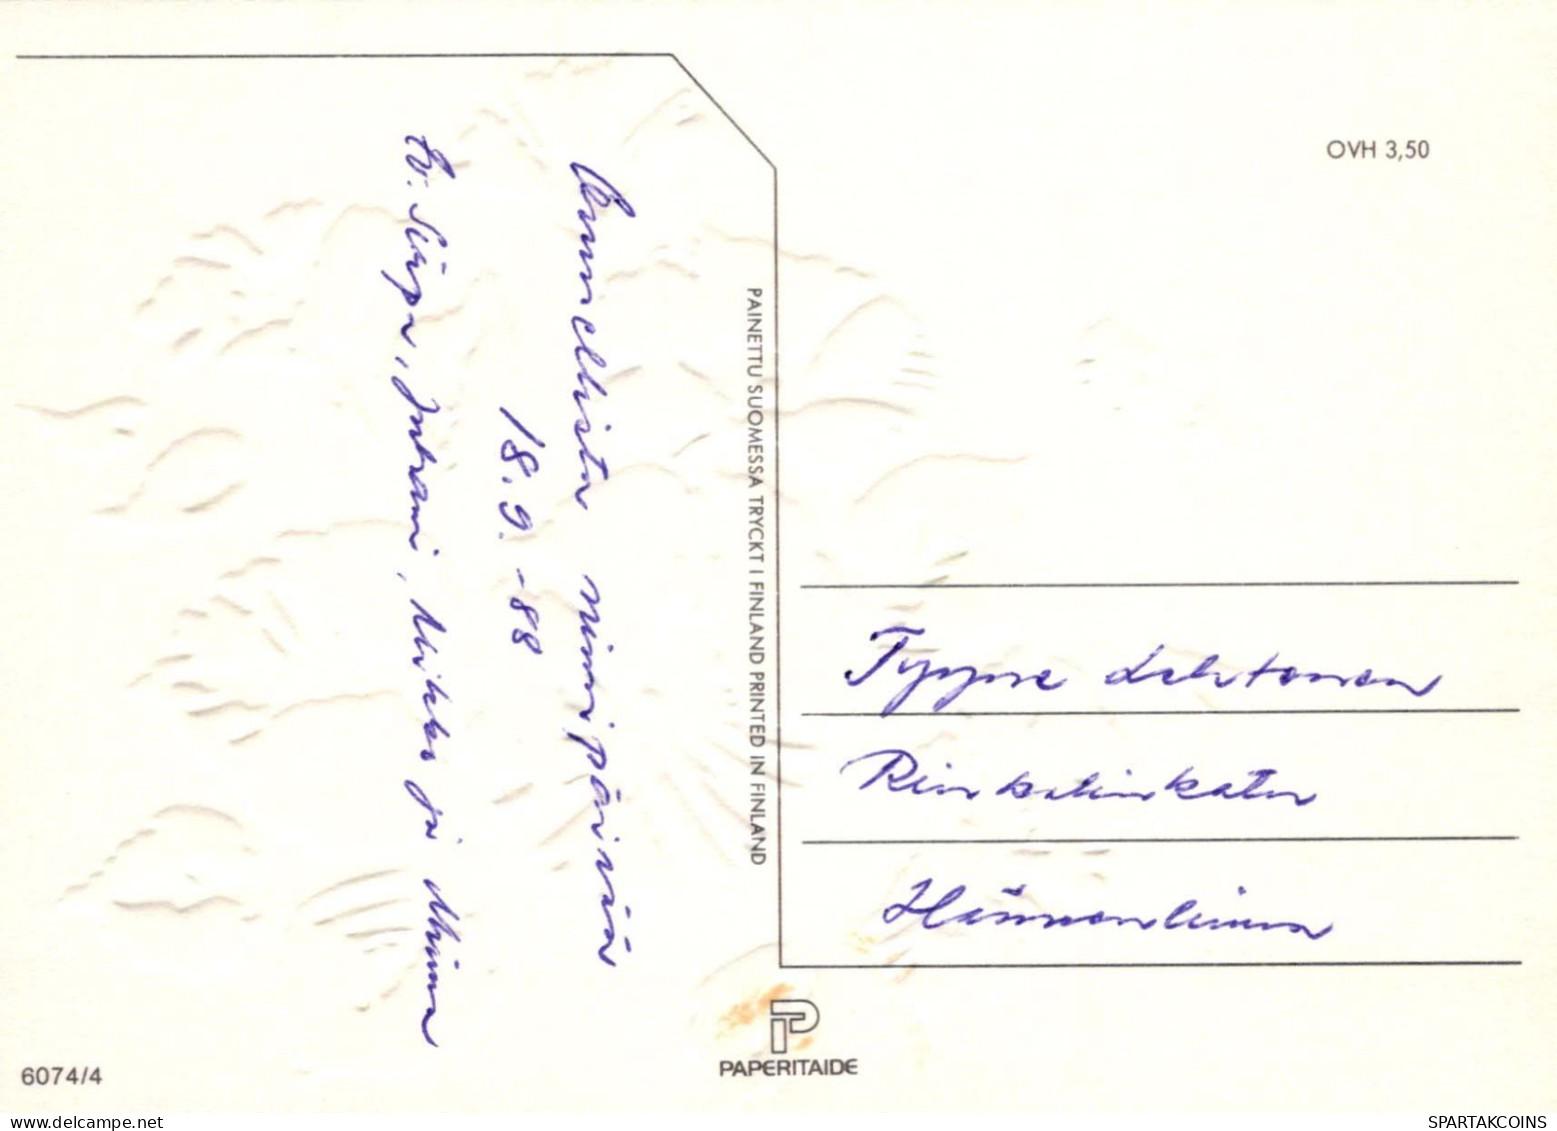 Onnellista nimipäivää
18.9.-88
tv. Sirpa, Juhani, Mikko ja Minna
OVH 3,50
PAINETTU SUOMESSA TRYCKT I FINLAND PRINTED IN FINLAND
Tyyne Lehtonen
Rinkelinkatu
Hämeenlinna
PAPERITAIDE
6074/4
SPARTAKCOINS